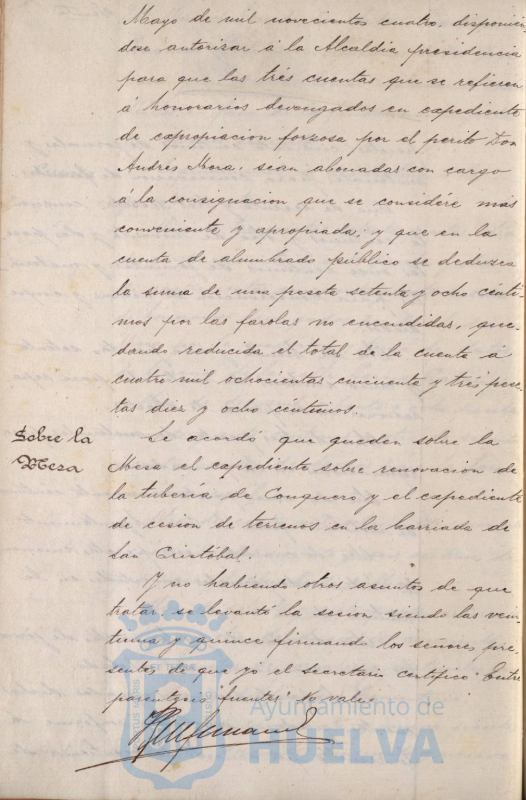 Mayo de mil novecientos cuatro, disponien-
dose autorizar á la Alcaldia presidencia
para que las trés cuentas que se refieren
á honorarios devengados en expediente
de expropiacion forzosa por el perito Don
Andrés Mora, sean abonadas con cargo
á la consignacion que se considére mas
conveniente y apropiada, y que en la
cuenta de alumbrado público se deduzca
la suma de una peseta setenta y ocho cénti-
mos por las farolas no encendidas, que-
dando reducida el total de la cuenta á
cuatro mil ochocientas cincuenta y trés pese-
tas diez y ocho céntimos.
Sobre la
Meza
Se acordó que queden sobre la
Mesa el expediente sobre renovacion de
la tubería de Conquero y el expediente
de cesion de terrenos en la barriada de
San Cristóbal.
Y no habiendo otros asuntos de que
tratar, se levantó la sesion siendo las vein-
tiuna y quince firmando los señores pre-
sentes de que yó el Secretario certifico. Entre
parentesis fuentes: No vale.
Ayuntamiento de
HUELVA